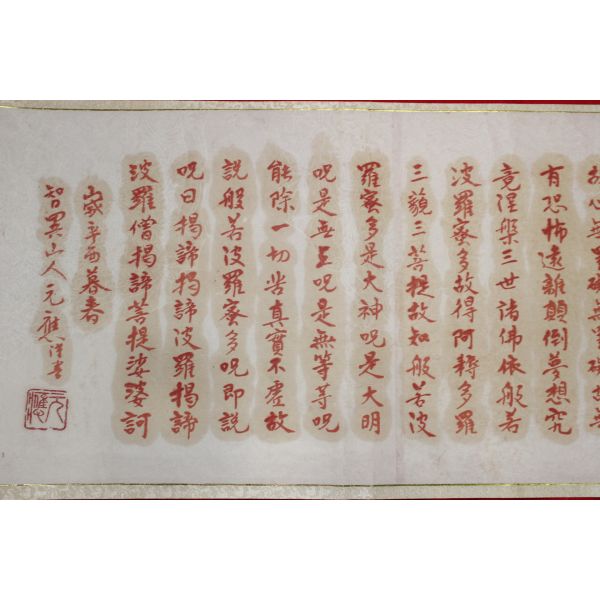 故心無罣礙無罣礙故無
有恐怖遠離顛倒夢想究
竟涅槃三世諸佛依般若
波羅蜜多故得阿耨多羅
三藐三菩提故知般若波
羅蜜多是大神呪是大明
呪是无上呪是無等等呪
能除一切苦真實不虛故
說般若波羅蜜多呪即說
呪曰揭諦揭諦波羅揭諦
波羅僧揭諦菩提娑婆訶
歲辛酉暮春
智異山人元應書
元應